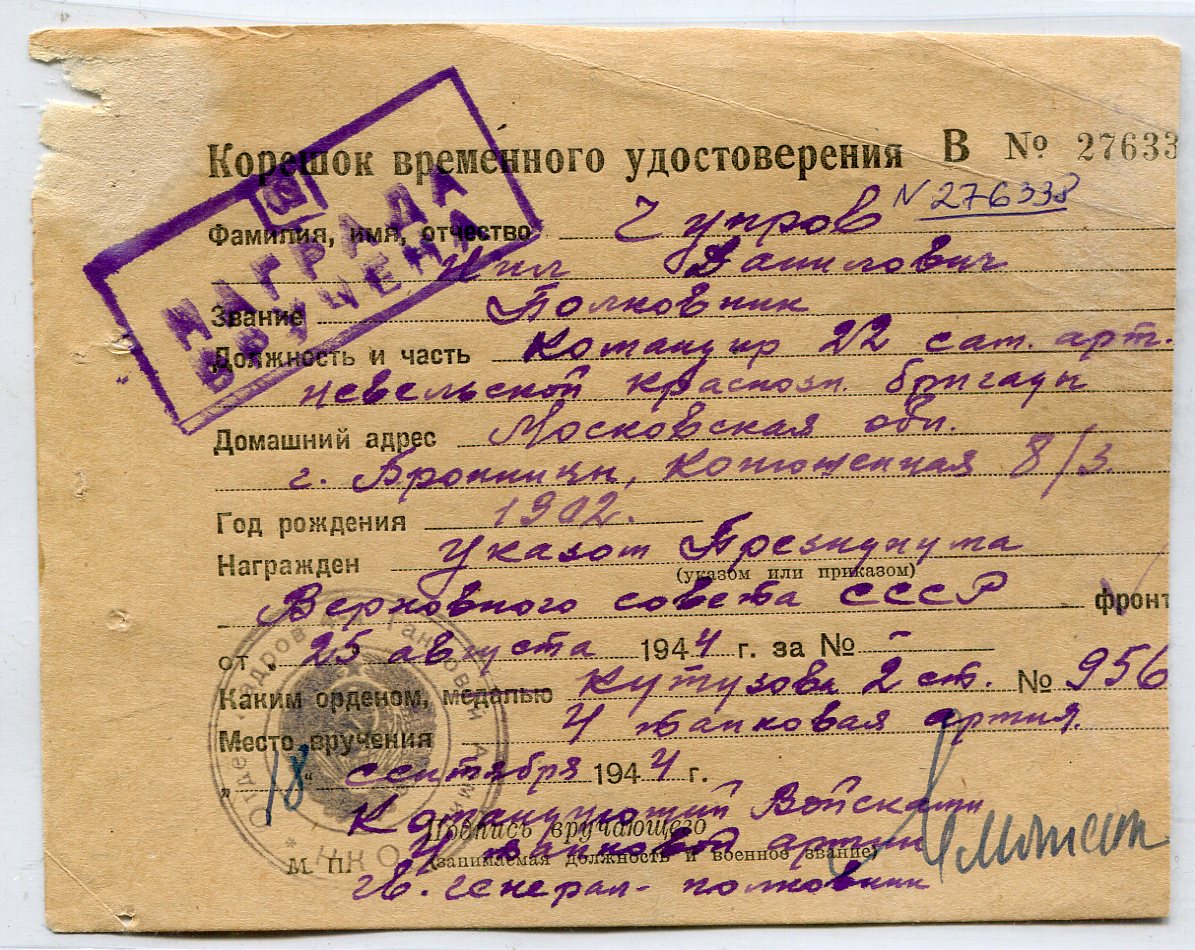 Корешок временного удостоверения В № 27633
N 276338
НАГРАДА
ВРУЧЕНА
Фамилия, имя, отчество Чупров
Нил Данилович
Звание Полковник
Должность и часть Командир 22 сам. арт.
Невельской краснозн. бригады
Домашний адрес Московская обл.
г. Бронницы, 8/3.
Год рождения 1902.
Награжден Указом Президиума
(указом или приказом)
Верховного совета СССР фронт
от „ 25 августа 1944 г. за № -
Каким орденом, медалью Кутузова 2 ст. № 956
Место вручения 4 танковая армия.
„18“ сентября 1944 г.
Командующий Войсками
Подпись вручающего
4 танковой армии
М. П. (занимаемая должность и военное звание)
гв. генерал-полковник